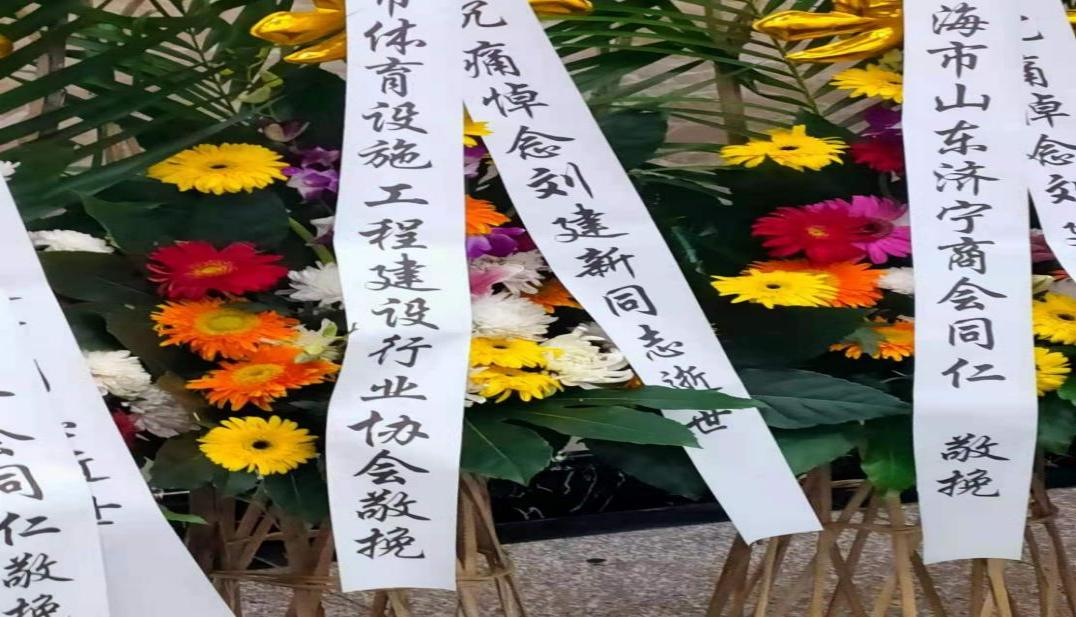 市体育设施工程建设行业协会敬挽
沉痛悼念刘建新同志逝世
海市山东济宁商会同仁 敬挽
沉痛悼念刘建
会同仁敬挽
逝世